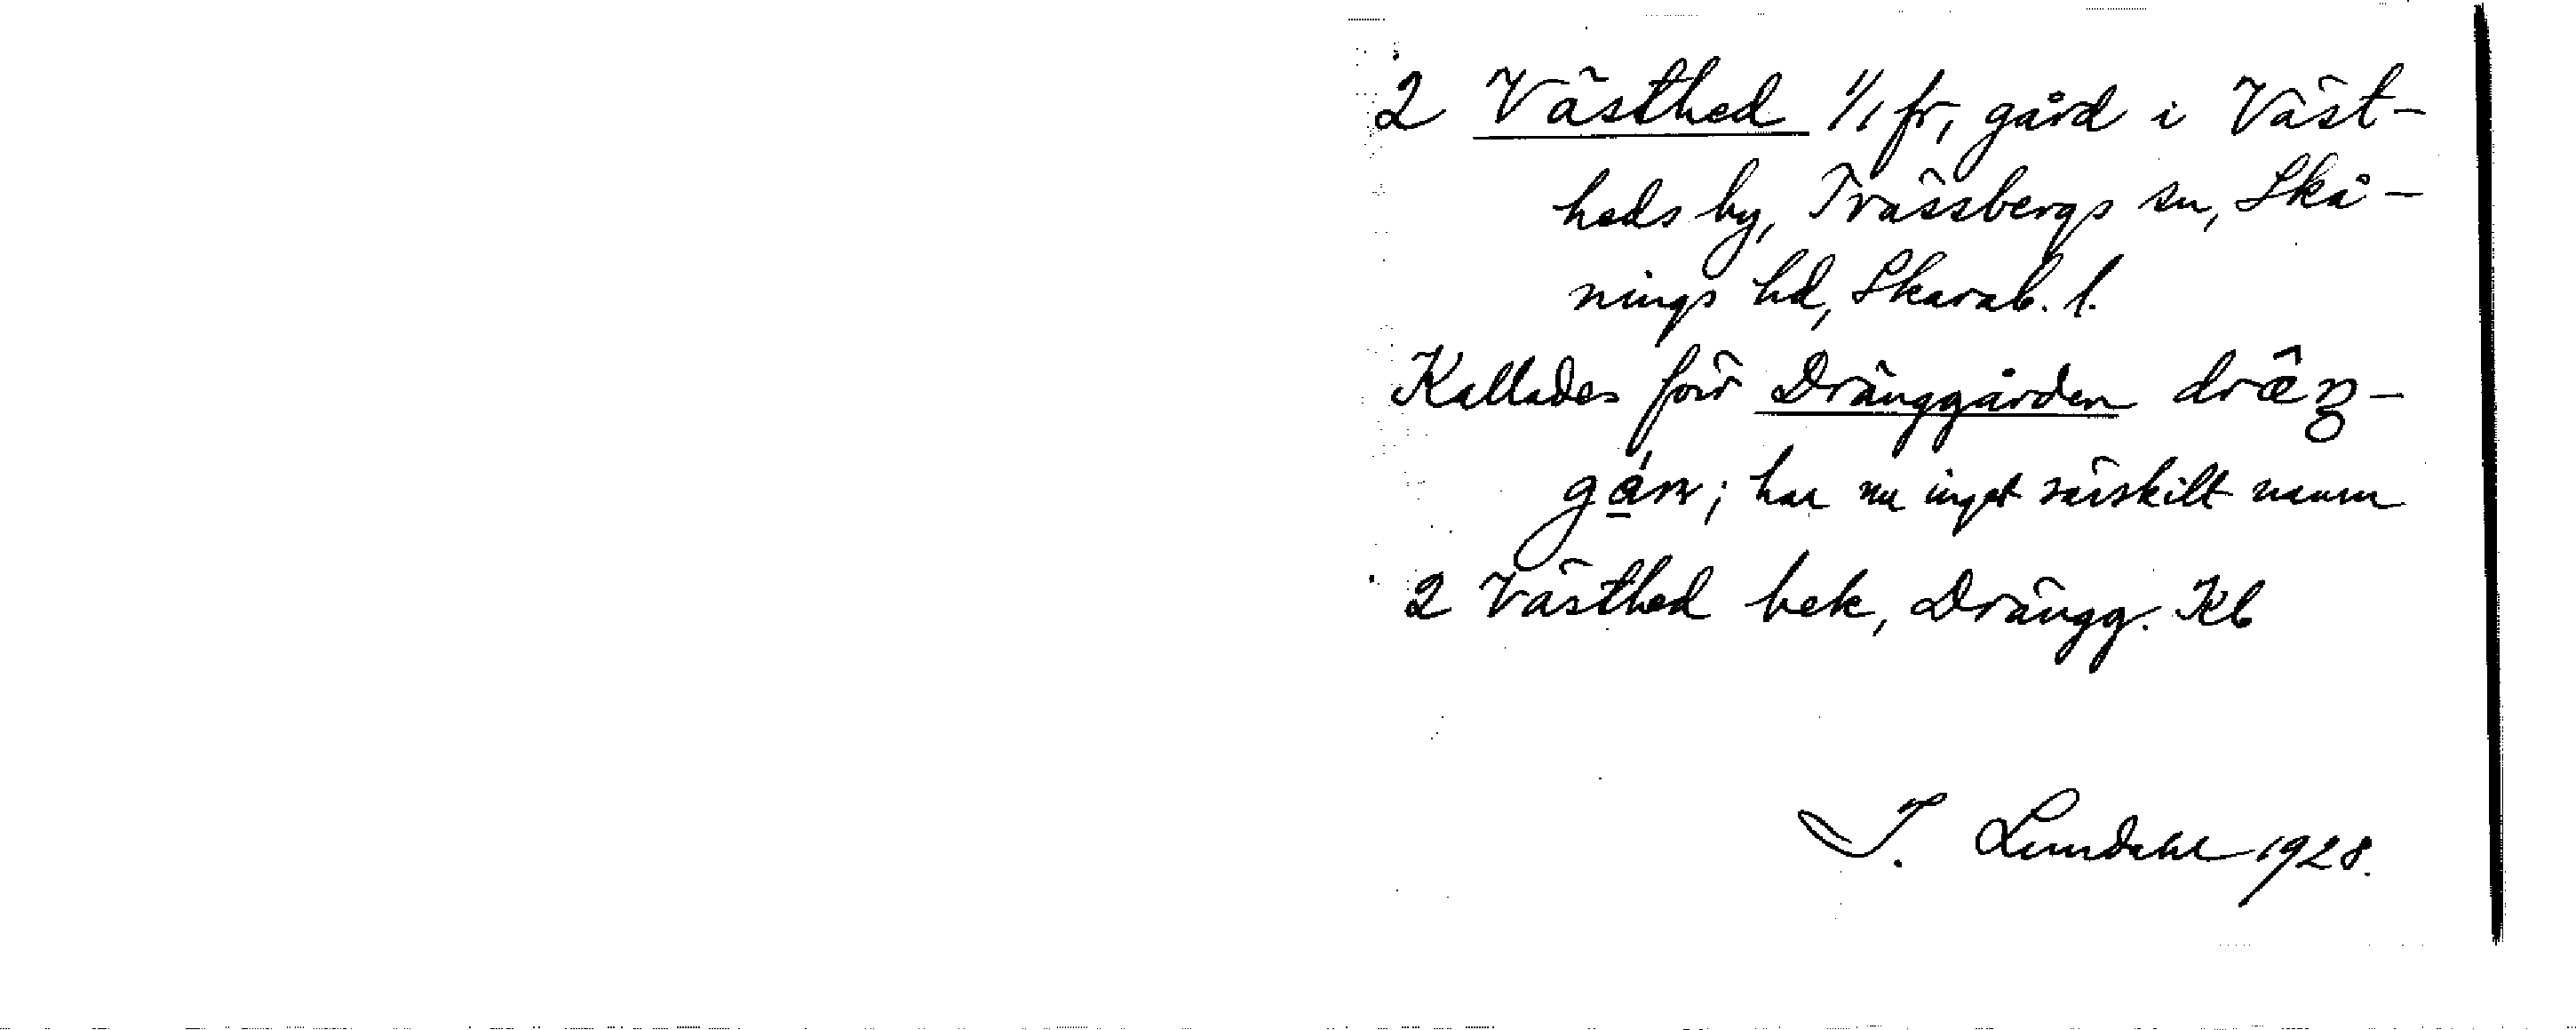 2 Västhed 1/1 fr, gård i Väst-
heds by, Trässbergs sn, Skå-
nings hd, Skarab. l.
Kallades förr Dränggården
gá̱n; har nu inget särskilt namn
2 Västhed bek, Drängg. Kb
I. Lundahl 1928.